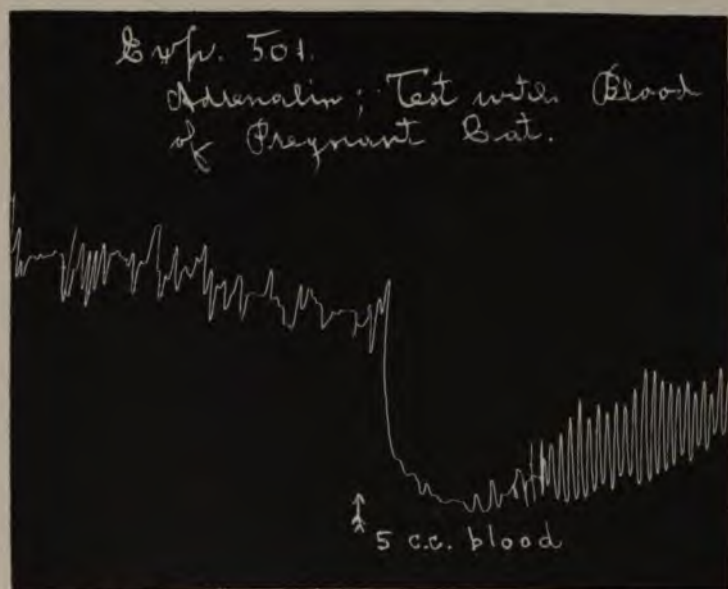 Exp. 501.
Adrenalin; Test with Blood
of Pregnant Cat.
5 c.c. blood